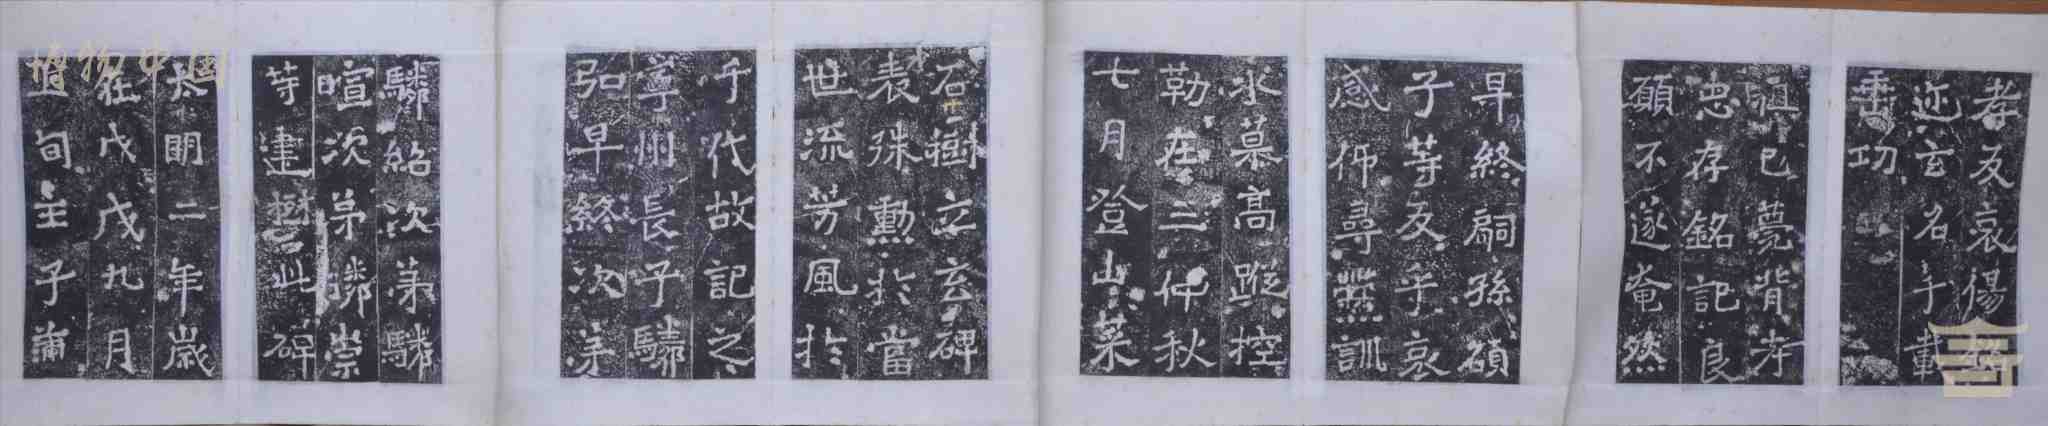 孝友哀傷銘
迹玄石千載
垂功
祖已薨背考
志存銘記良
願不遂奄然
早終嗣孫碩
子等友乎哀
感仰尋靈訓
永慕高蹤控
勒在三仲秋
七月登山采
石樹立玄碑
表殊勳於當
世流芳風於
千代故記之
寧州長子驎
弘早終次弟
驎紹次弟驎
暄次弟驎崇
等建樹此碑
大明二年歲
在戊戌九月
上旬壬子蒲
博物中国